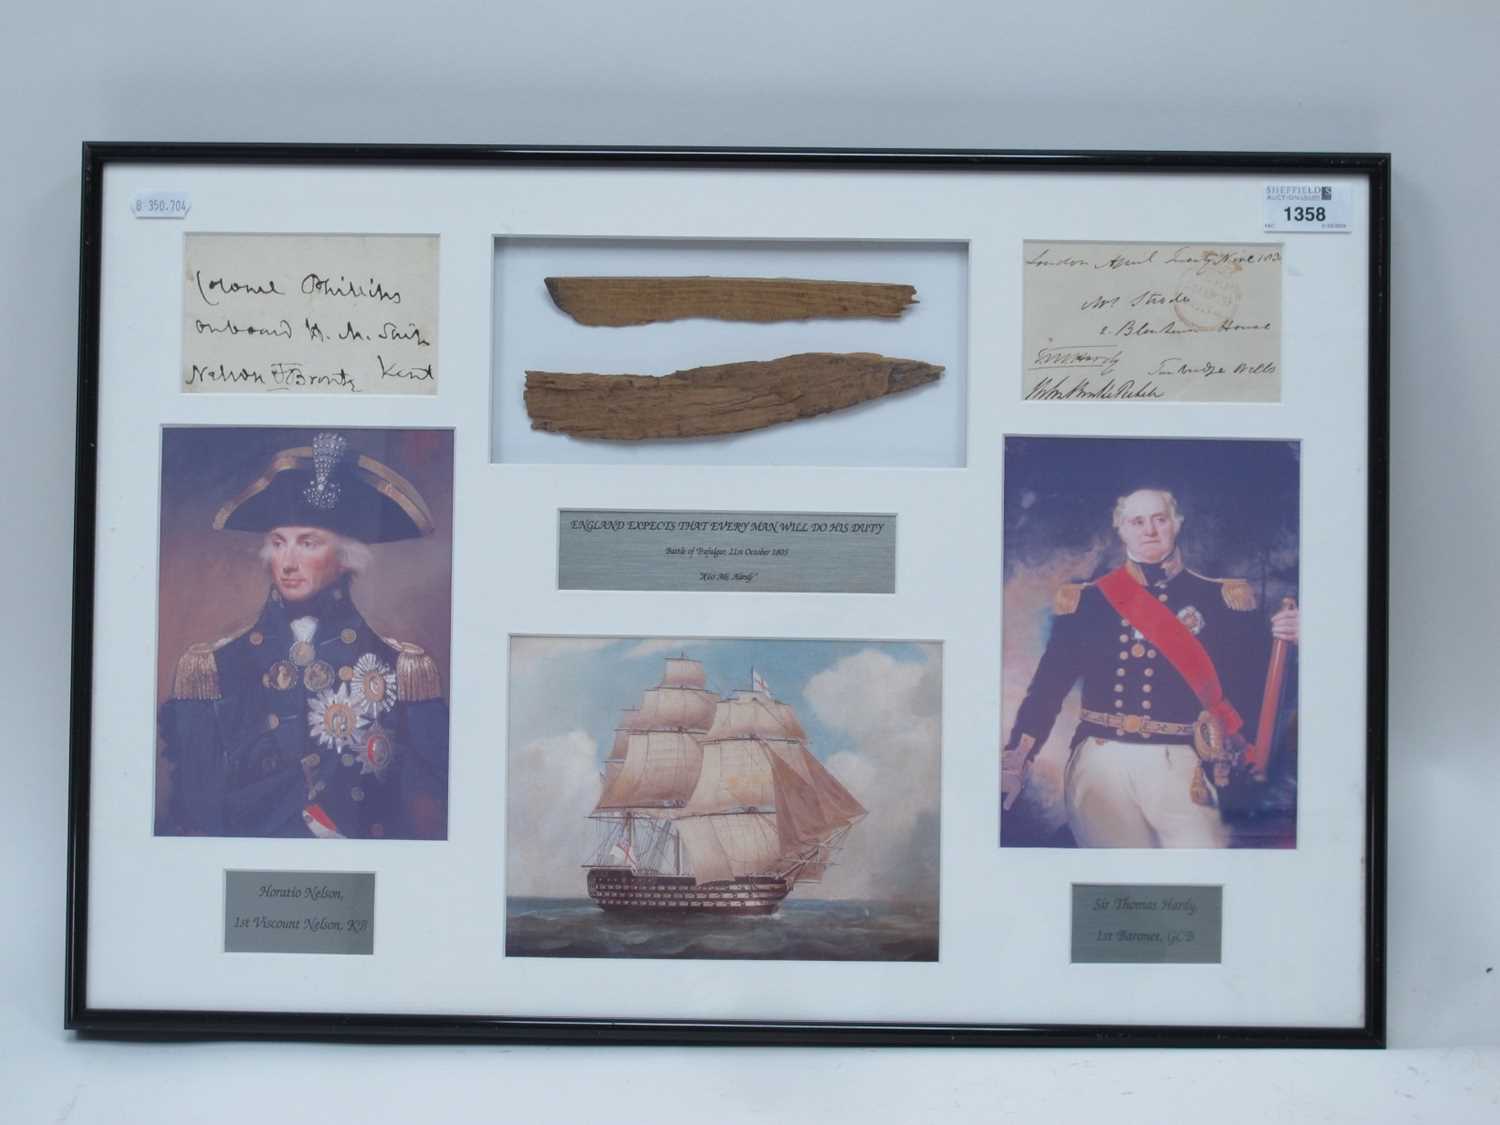 8 350.704
SHEFFIELD S
AUCTION GALLERY
1358
Colonel Phillips
onboard H. M. Ship
Nelson & Bronte Kent
London April Twenty Nine 183
Mr Strode
2. Blenheim House
TM Hardy Tunbridge Wells
ENGLAND EXPECTS THAT EVERY MAN WILL DO HIS DUTY
Battle of Trafalgar, 21st October 1805
"Kiss Me, Hardy"
Horatio Nelson,
1st Viscount Nelson, KB
Sir Thomas Hardy,
1st Baronet, GCB